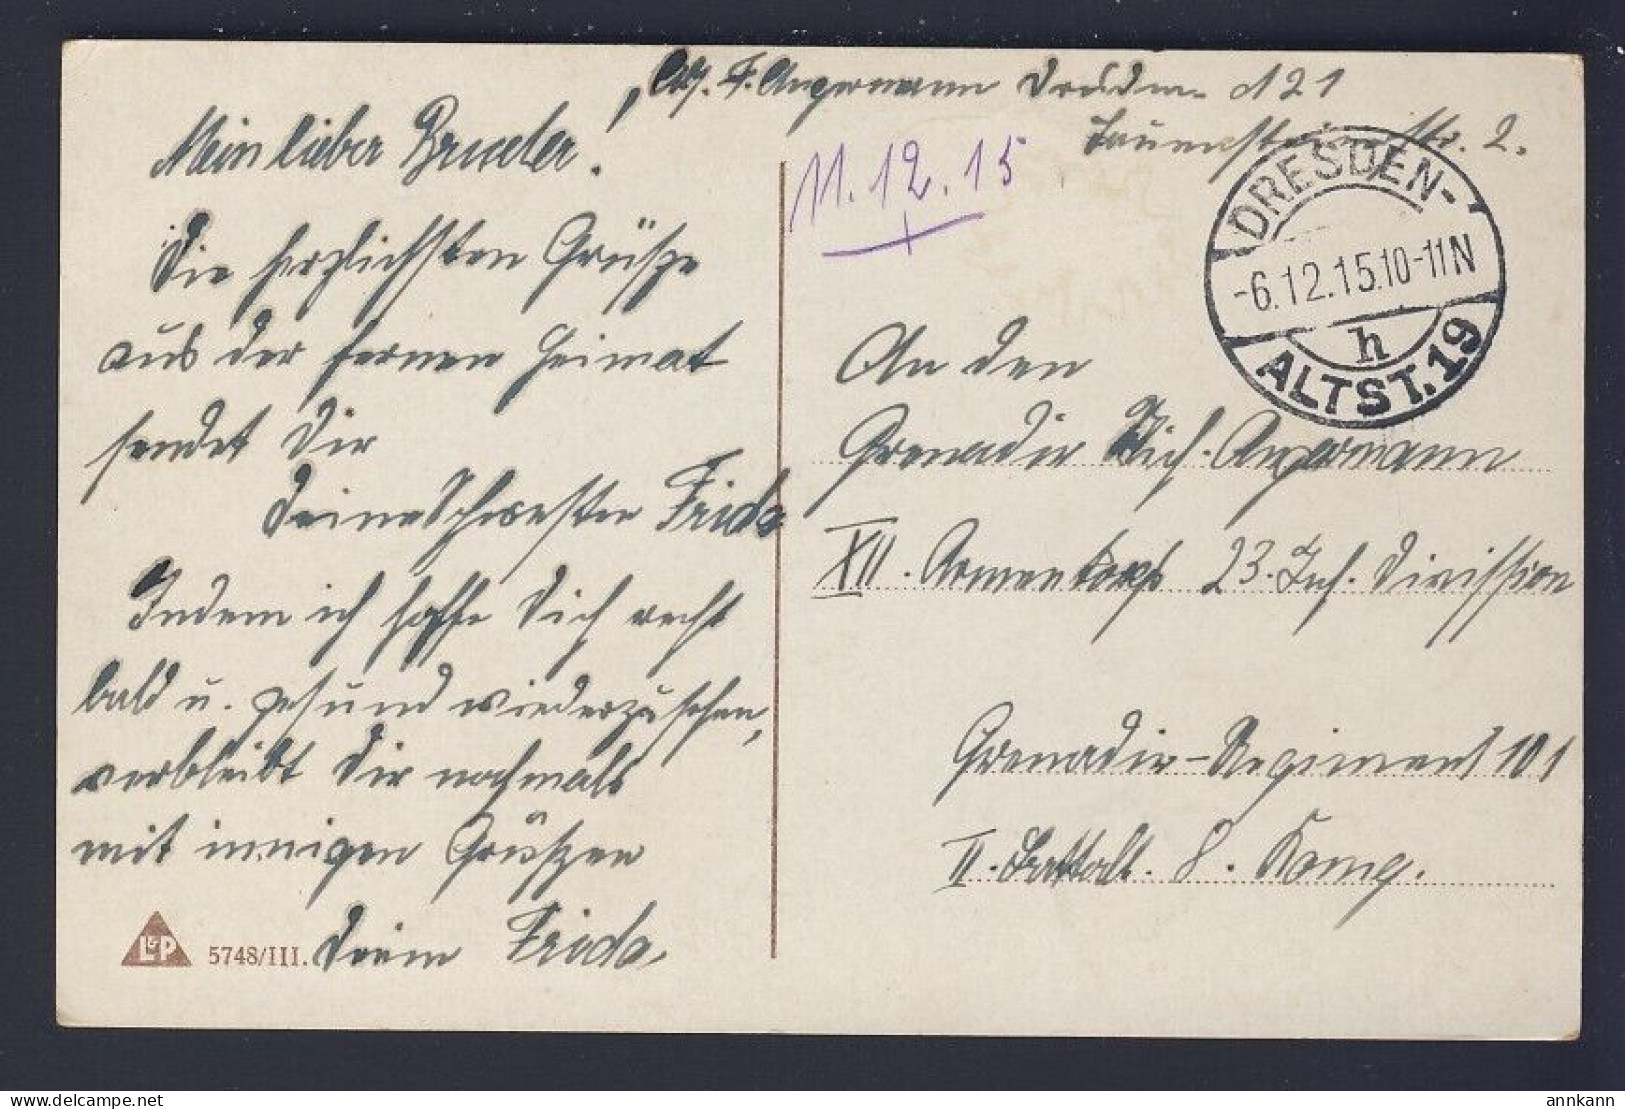 Mein lieber Bruder!
Die herzlichsten Grüße
aus der fernen Heimat
sendet Dir
Deine Schwester Frida
Indem ich hoffe Dich recht
bald u. gesund wiederzusehen,
verbleibt Dir nochmals
mit innigen Grüßen
Deine Frida.
L&P 5748/III.
Abs. F. Angermann Dresden A 21
str. 2.
11.12.15
DRESDEN-
-6.12.15.10-11N
h
ALTST. 19
An den
Grenadir Rich. Angermann
XII. Armeekorps 23. Inf. Division
Grenadir-Regiment 101
II. Battall. 8. Komp.
annkann